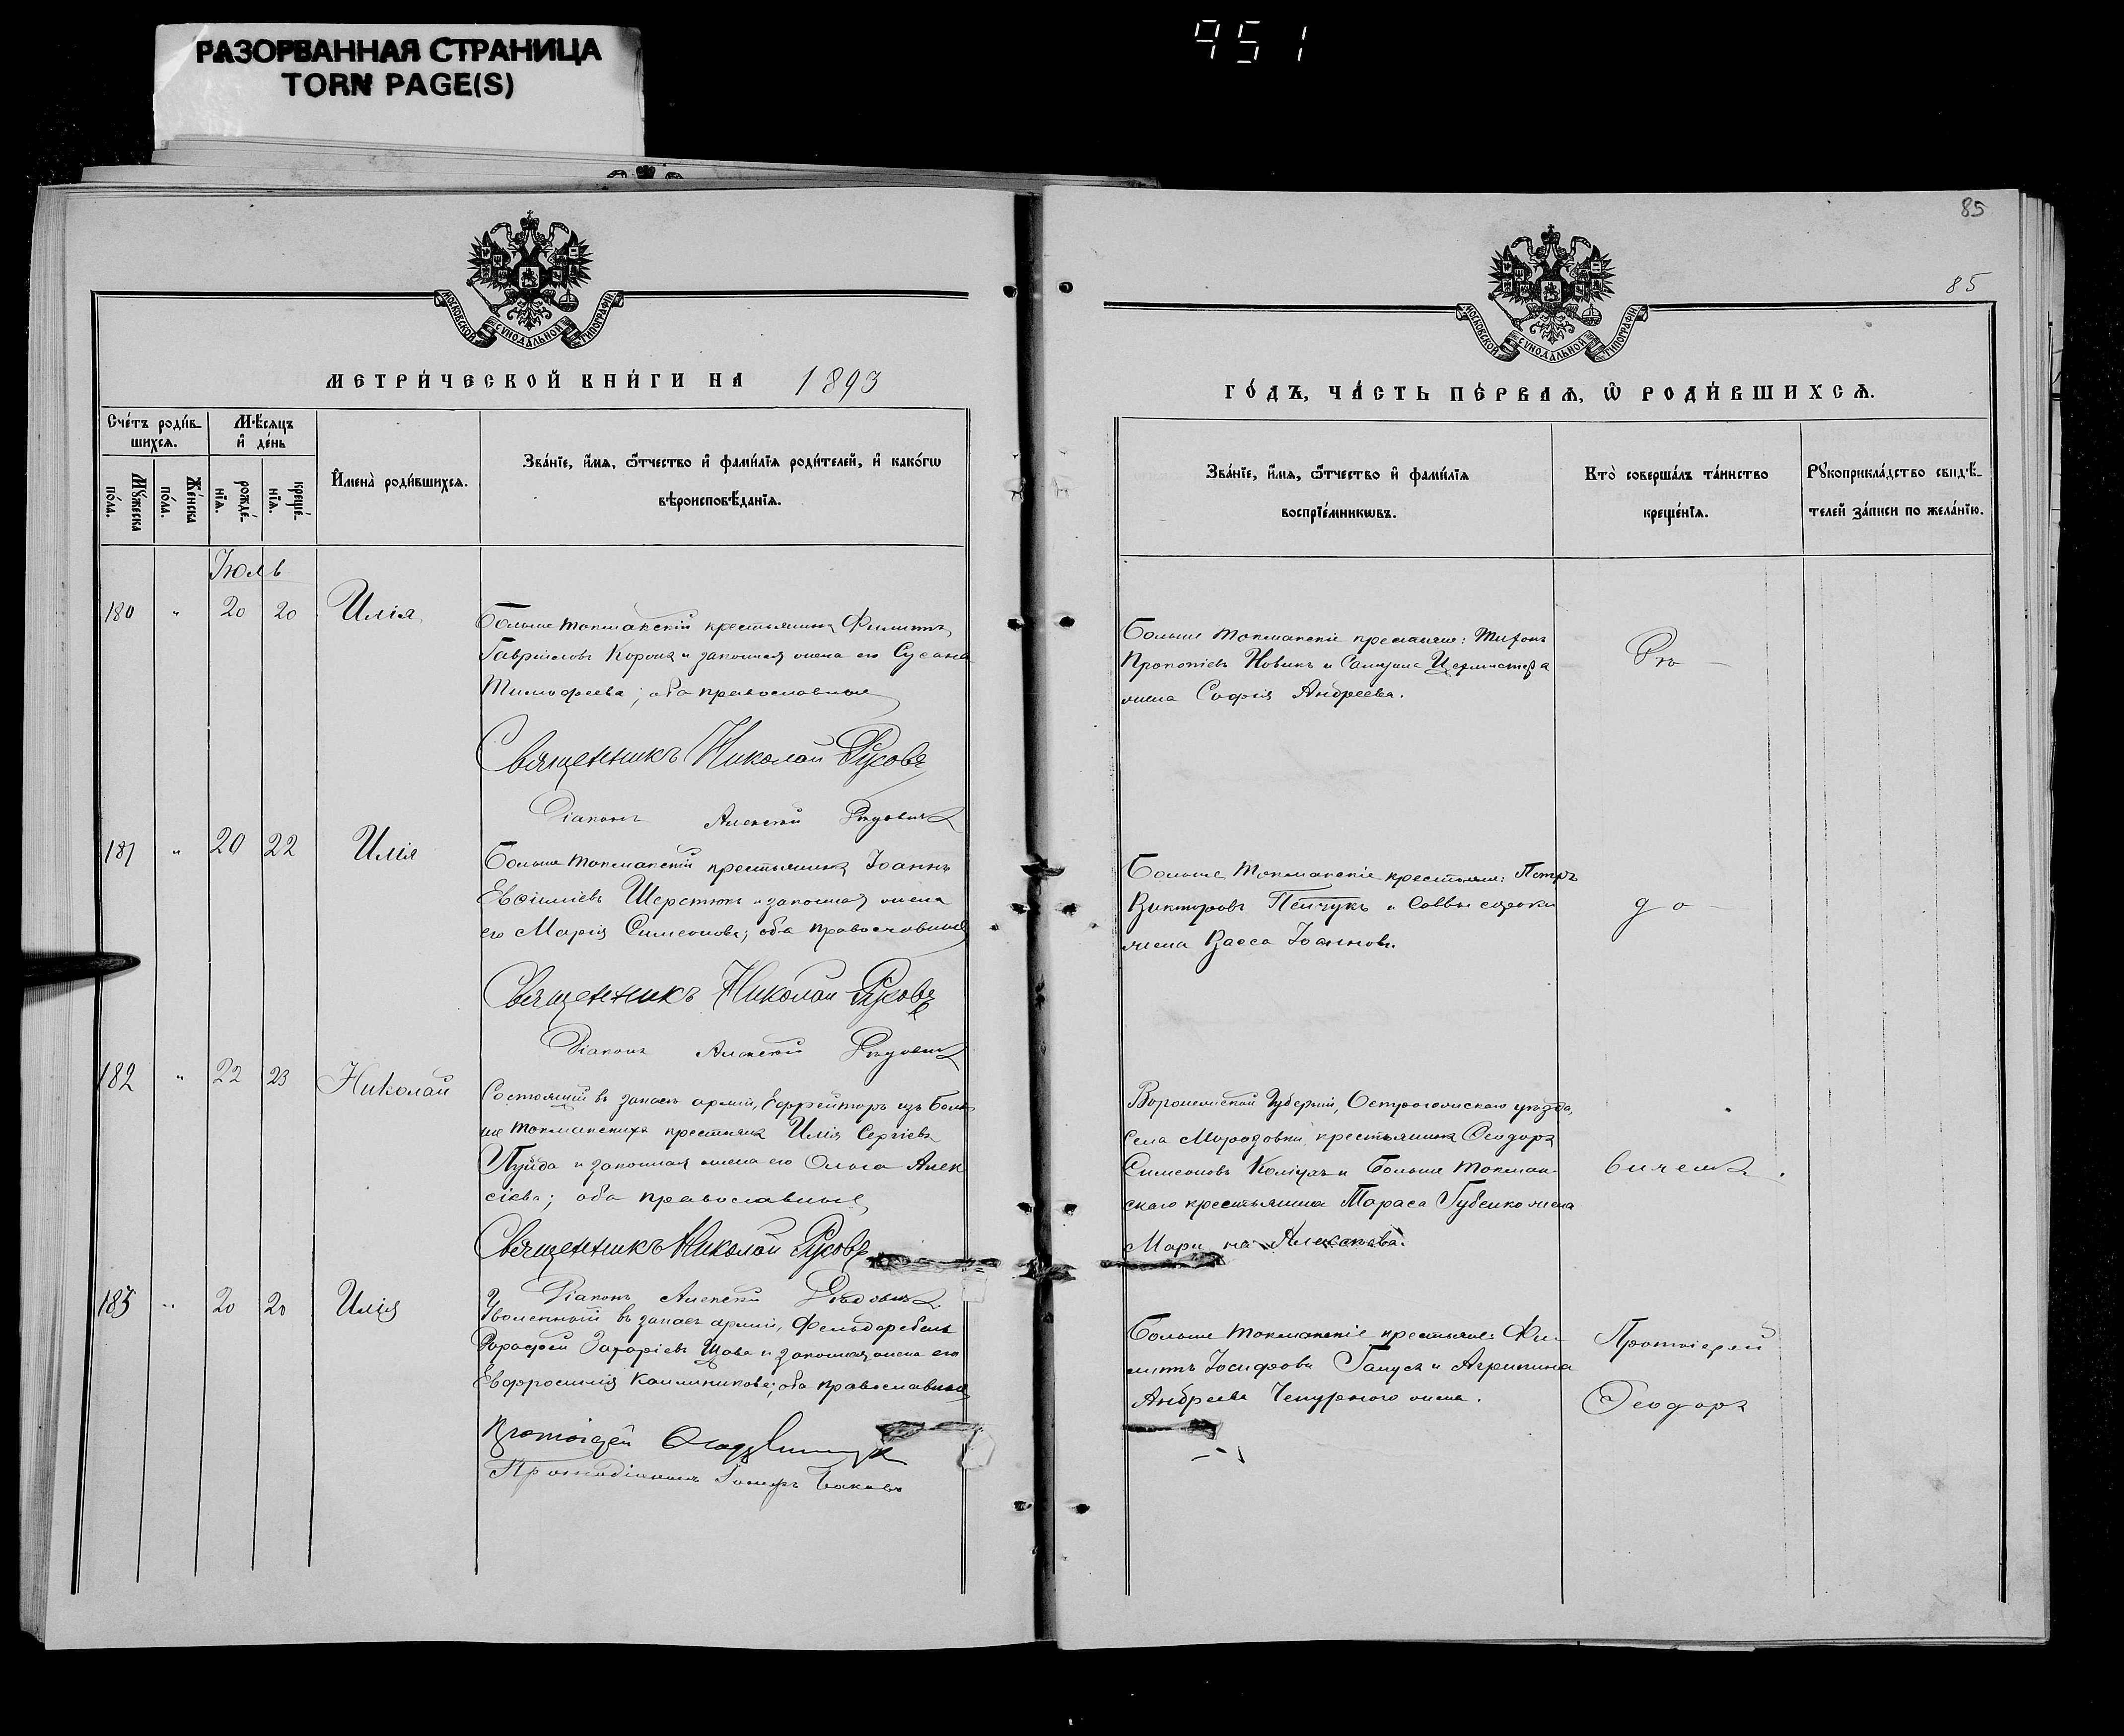 РАЗОРВАННАЯ СТРАНИЦА
TORN PAGE(S)
951
85
85
МОСКОВСКОЙ СѴНОДАЛЬНОЙ ТИПОГРАФІИ
МОСКОВСКОЙ СѴНОДАЛЬНОЙ ТИПОГРАФІИ
МЕТРИ́ЧЕСКОЙ КНИ́ГИ НА 1893
ГО́ДЪ, ЧА́СТЬ ПЕ́РВАЯ, Ѡ РОДИ́ВШИХСЯ.
Сче́тъ роди́в-
шихся.
Му́жеска
по́ла.
Же́нска
по́ла.
Мѣ́сяцъ
и де́нь
рожде́-
нїя.
креще́-
нїя.
Имена̀ роди́вшихся.
Зва́нїе, и́мя, ѻ́тчество и фами́лїя роди́телей, и како́гѡ
вѣроисповѣ́данїя.
Зва́нїе, и́мя, ѻ́тчество и фами́лїя
воспрїе́мникѡвъ.
Кто̀ соверша́лъ та́инство
креще́нїя.
Рꙋкоприкла́дство свидѣ́-
телей за́писи по жела́нїю.
Іюль
180 " 20 20 Илія
Больше Токмакскій крестьянинъ Филиппъ
Гавріиловъ Корона и законная жена его Сусана
Тимофеева; оба православные
Священникъ Николай Русовъ
Діаконъ Алексій
Больше Токмакскіе крестьяне: Тихонъ
Прокопіевъ Новикъ и Самуила
жена Софія Андреева.
181 " 20 22 Илія
Больше Токмакскій крестьянинъ Іоаннъ
Евѳиміевъ Шерстюкъ и законная жена
его Марія Симеонова; оба православные
Священникъ Николай Русовъ
Діаконъ Алексій
Больше Токмакскіе крестьяне: Петръ
Викторовъ и Саввы Сороки
жена Васса Іоаннова.
до
182 " 22 23 Николай
Состоящій въ запасѣ арміи, Ефрейторъ изъ Боль-
ше Токмакскихъ крестьянъ Илія Сергіевъ
и законная жена его Ольга Алек-
сіева; оба православные
Священникъ Николай Русовъ
Діаконъ Алексій
Воронежской Губерніи, Острогожскаго уѣзда,
села Морозовки крестьянинъ Ѳеодоръ
Симеоновъ и Больше Токмак-
скаго крестьянина Тараса Губенко жена
185 " 20 20 Илія
Уволенный въ запасъ арміи, Фельдфебель
Захаріевъ и законная жена его
Евфросинія Каллиникова; оба православные
Протоіерей
Протодіаконъ Іосифъ
Больше Токмакскіе крестьяне: Фи-
липпъ Іосифовъ и Агрипина
Андреева Чепурного жена.
Протоіерей
Ѳеодоръ